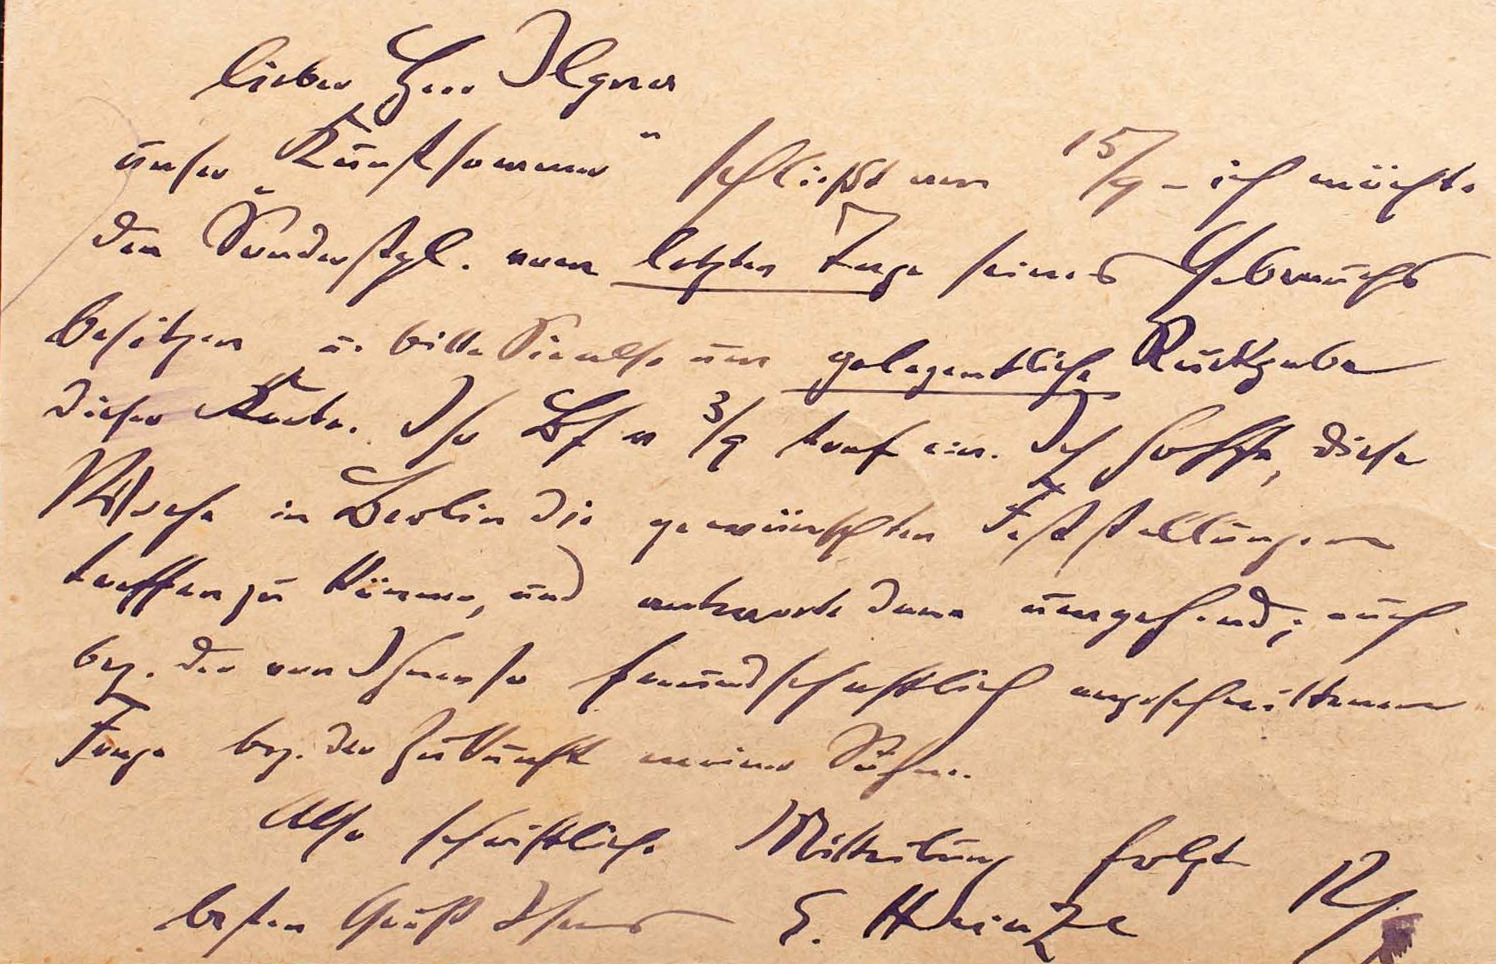 lieber Herr Ilgner
unser "Kunstsommer" schließt am 15/9 – ich möchte
den Sonderstpl. am letzten Tage seines Gebrauchs
besitzen u. bitte Sie also um gelegentliche Rückgabe
dieser Karte. Ihr Bf v 3/9 traf ein. Ich hoffe, diese
Woche in Berlin die gewünschten Feststellungen
treffen zu können, und antworte dann umgehend; auch
bez. der von Ihnen so freundschaftlich angeschnittenen
Frage bez. der Zukunft meiner Söhne.
Also schriftliche Mitteilung folgt
besten Gruß Ihres E. Heintze 12/